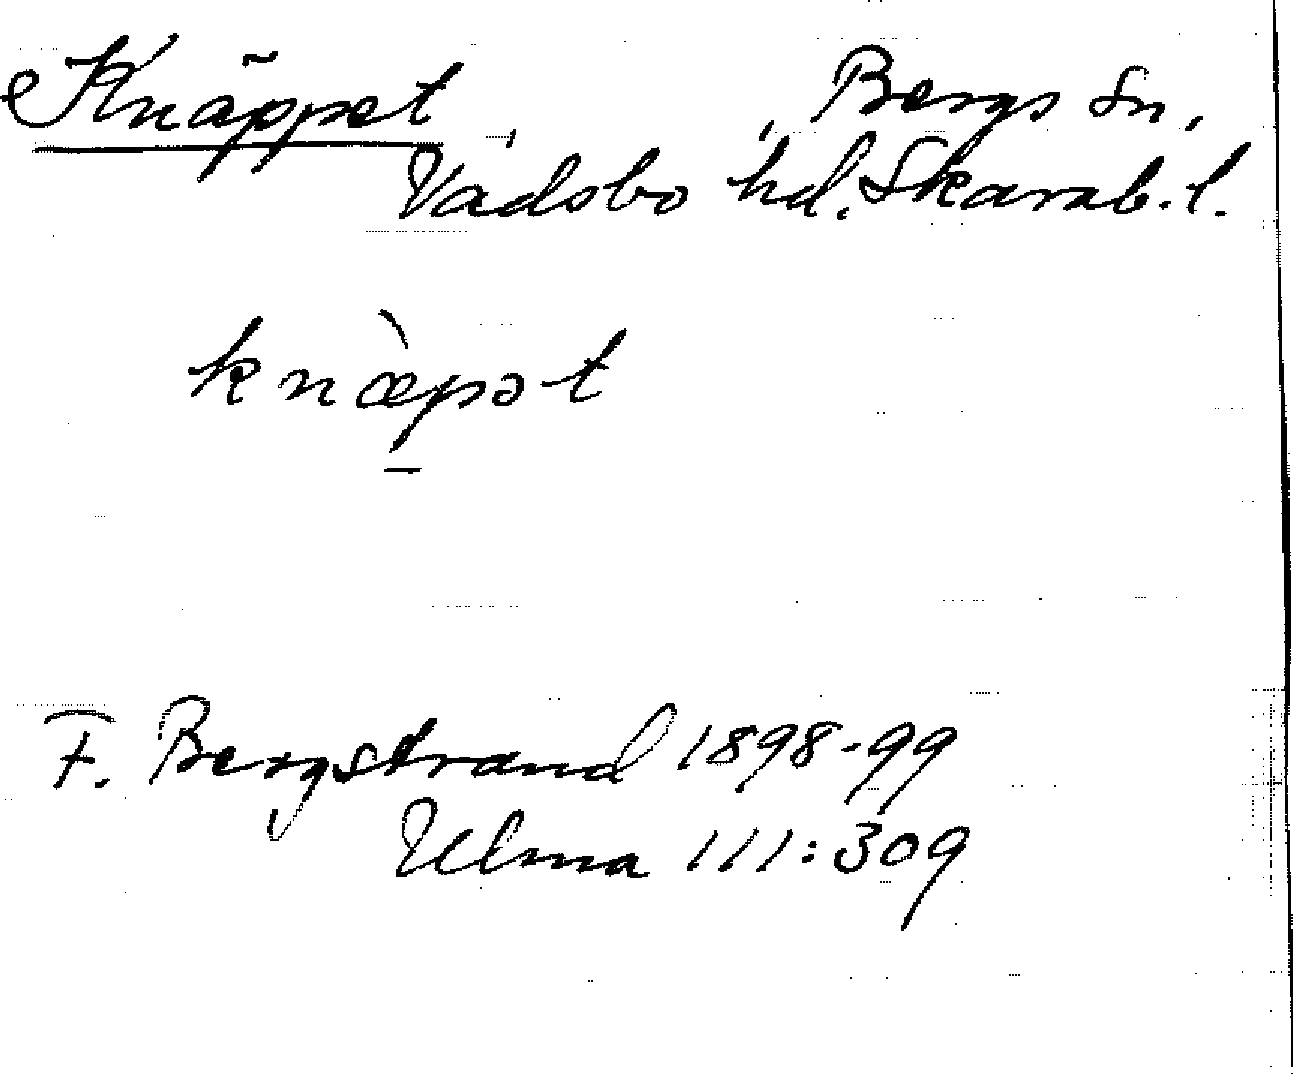 Knäppet, Bergs sn,
Vadsbo hd. Skarab. l.
knæ̀pət
F. Bergstrand 1898-99
Ulma 111:309